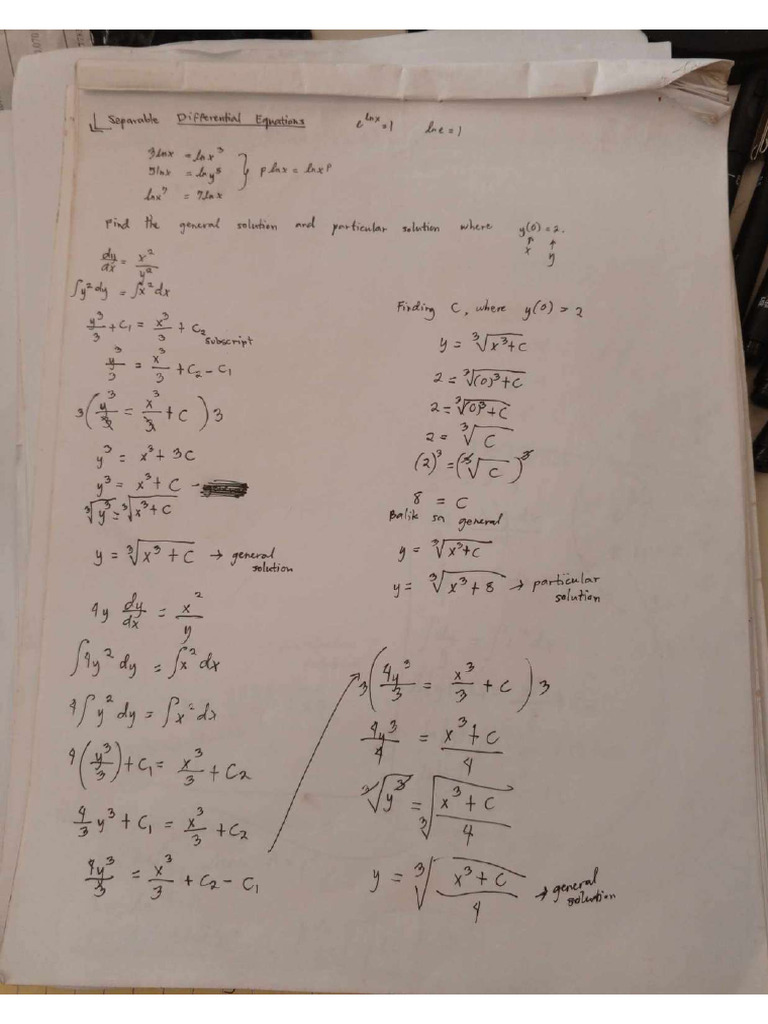 Separable Differential Equations
e^lnx = 1 ln e = 1
3lnx = lnx³
5lnx = lny⁵
lnx⁷ = 7lnx
p lnx = lnx^p
Find the general solution and particular solution where y(0) = 2.
x y
dy/dx = x²/y²
∫y²dy = ∫x²dx
y³/3 + C₁ = x³/3 + C₂
subscript
y³/3 = x³/3 + C₂ - C₁
3(y³/3 = x³/3 + C)3
y³ = x³ + 3C
y³ = x³ + C
∛y³ = ∛x³+C
y = ∛x³ + C → general solution
Finding C, where y(0) = 2
y = ∛x³+C
2 = ∛(0)³+C
2 = ∛(0)³+C
2 = ∛C
(2)³ = (∛C)³
8 = C
Balik sa general
y = ∛x³+C
y = ∛x³+8 → particular solution
4y dy/dx = x²/y
∫4y²dy = ∫x²dx
4∫y²dy = ∫x²dx
4(y³/3) + C₁ = x³/3 + C₂
4/3 y³ + C₁ = x³/3 + C₂
4y³/3 = x³/3 + C₂ - C₁
3(4y³/3 = x³/3 + C)3
4y³/4 = x³+C/4
∛y³ = ∛x³+C/4
y = ∛x³+C/4 → general solution